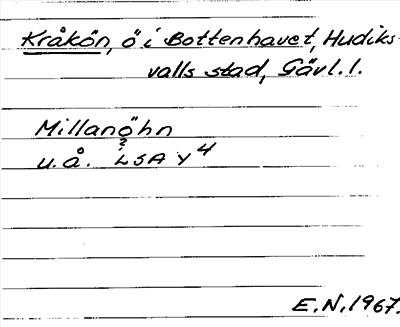 Kråkön, ö i Bottenhavet, Hudiks-
valls stad, Gävl. l.
Millanöhn
u.å. LSA Y4
E.N. 1967.